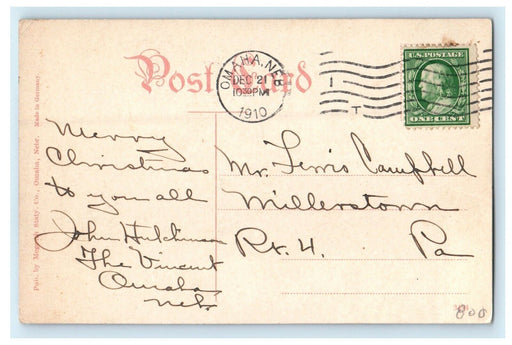 Post Card
OMAHA, NEB.
DEC 21
10 PM
1910
1
T
U.S. POSTAGE
ONE CENT
Merry
Christmas
to you all
John Hutchinson
The Vincent
Omaha
Neb.
Mr. Lewis Campbell
Millerstown
Rt. 4. Pa
Pub. by Stat'y Co., Omaha, Nebr. Made in Germany
800